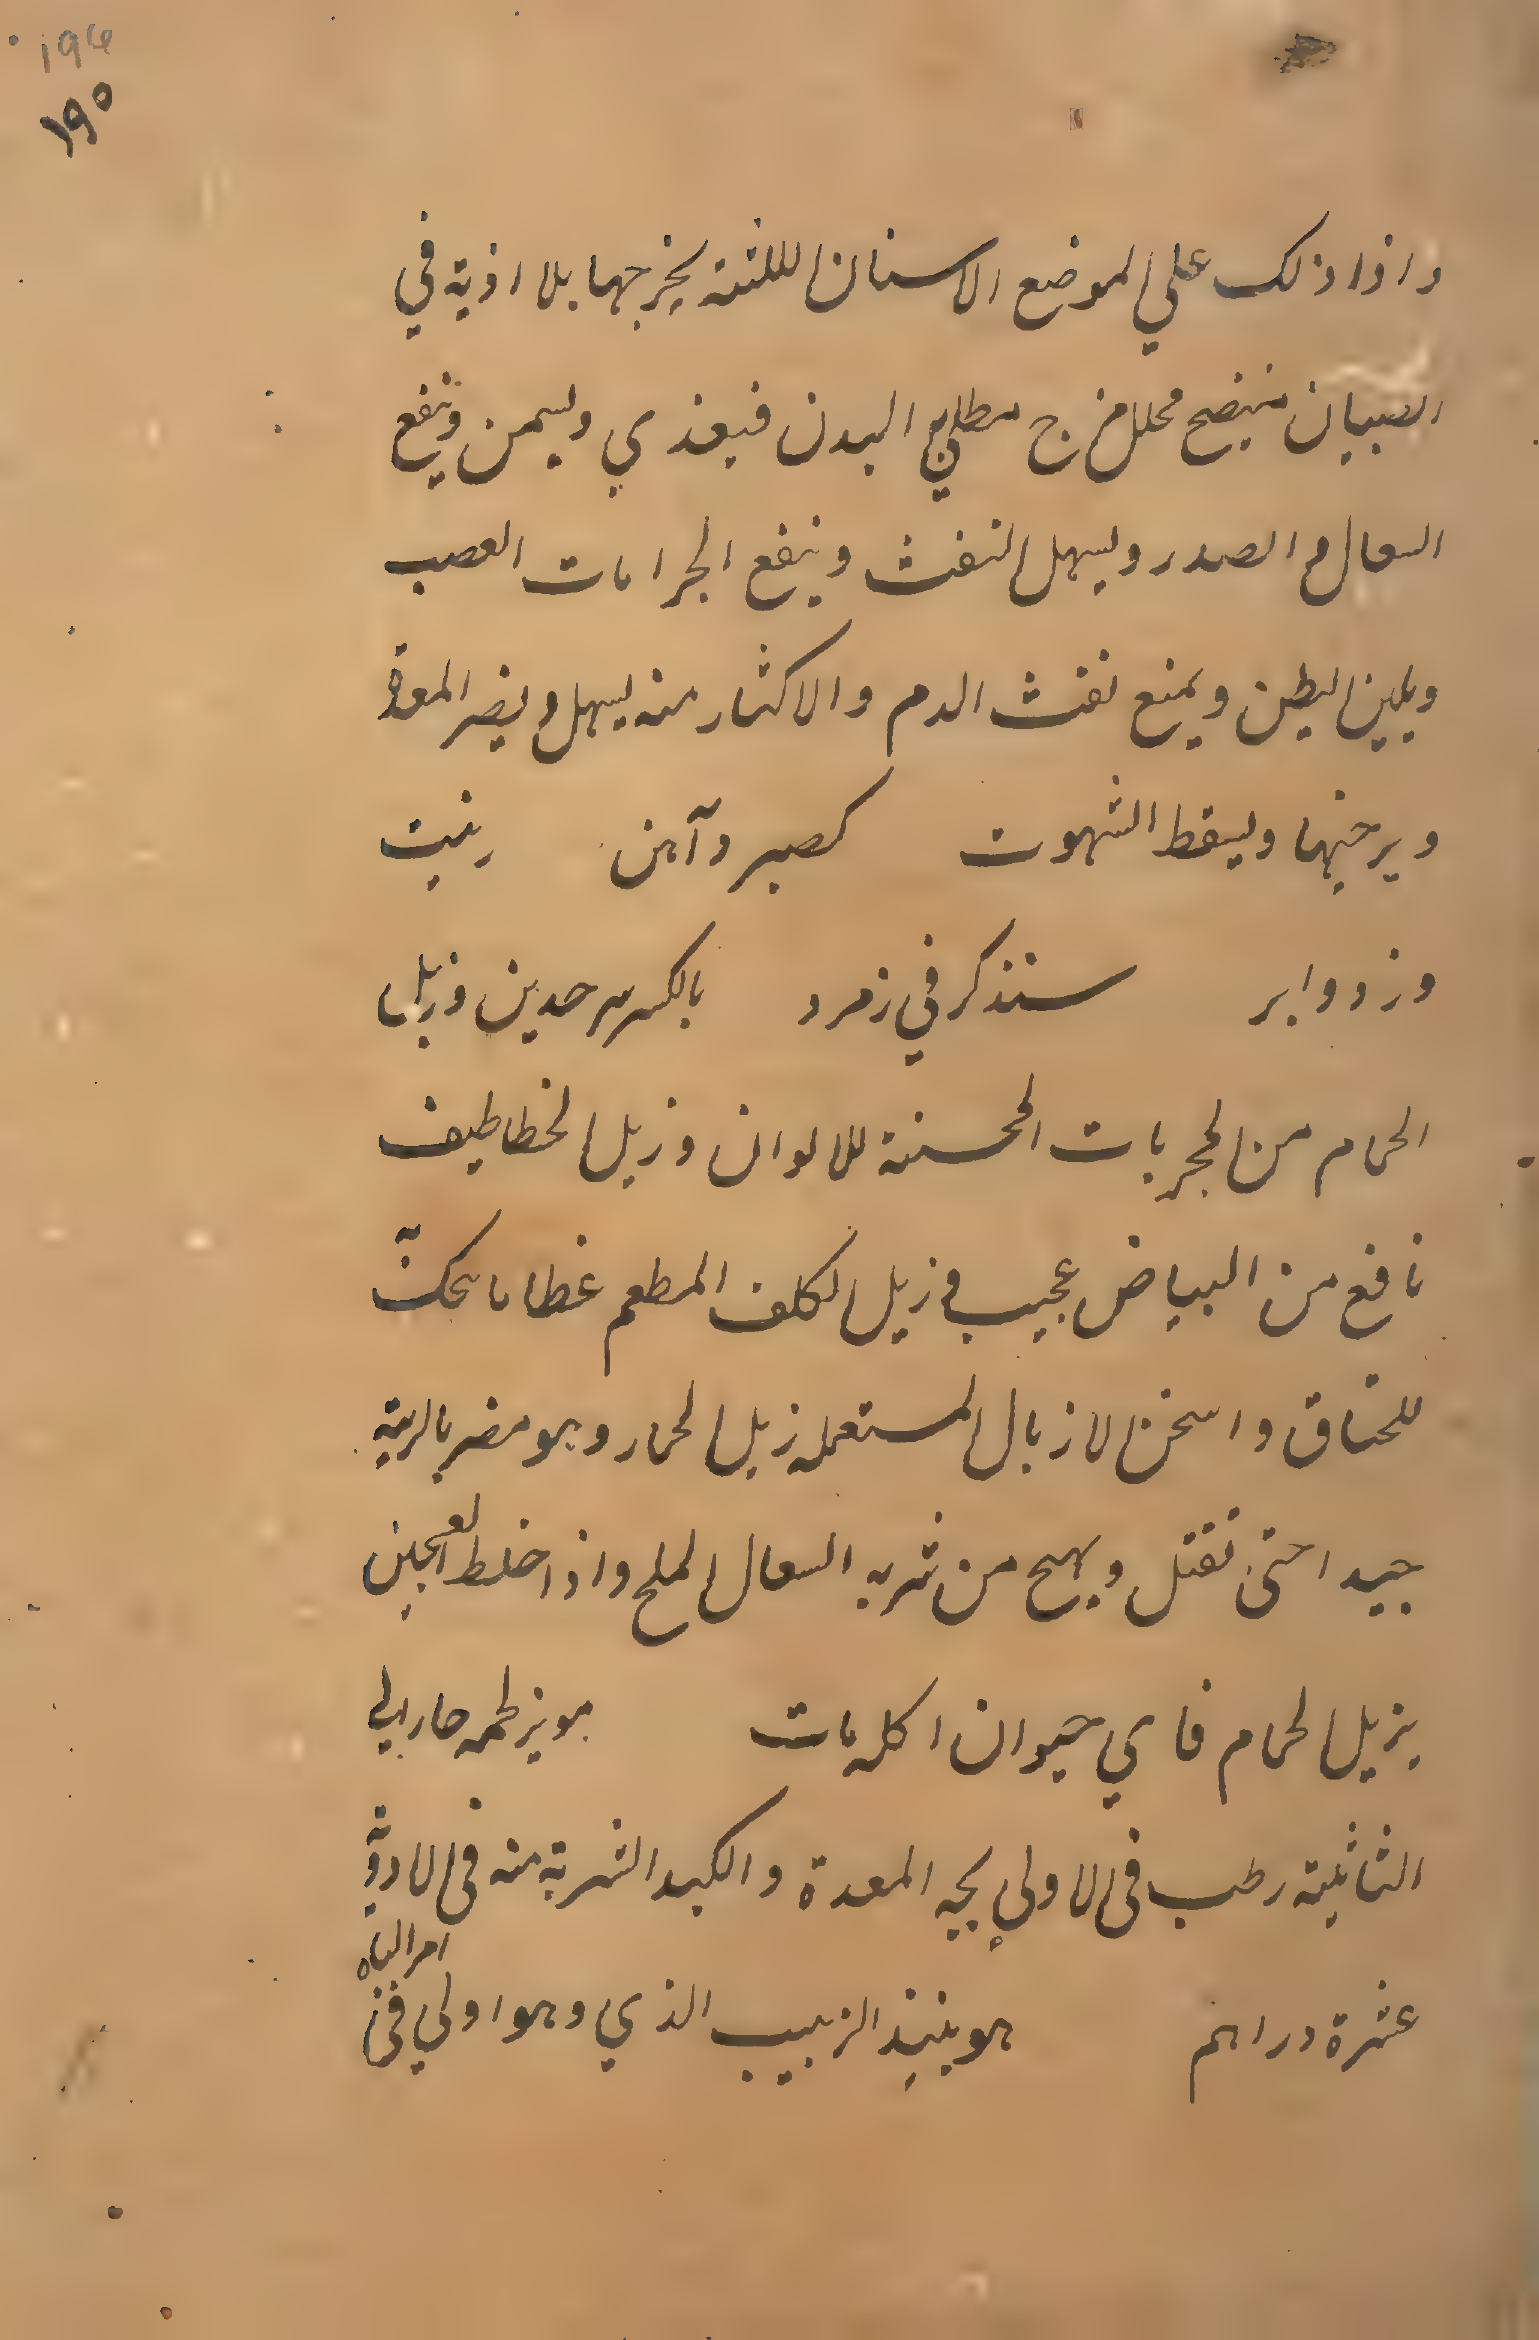 ١٩٤
١٩٥
واذا ذلك علي الموضع الاسنان لللثة يخرجها بلا اذية في
الصبيان منضج محلل مرخ مطلي البدن فيغذي ويسمن وينفع
السعال والصدر ويسهل النفث وينفع الجراحات العصب
ويلين البطن ويمنع نفث الدم والاكثار منه يسهل ويضر المعدة
ويرخيها ويسقط الشهوت كصبر وآهن زنيت
وزدوابر ستذكر في زمرد بالكسر سرحين وزبل
الحمام من المجربات المحسنة للالوان وزبل الخطاطيف
نافع من البياض عجيب وزبل الكلب المطعم عظاما بحنك
للخناق واسخن الازبال المستعمله زبل الحمار وهو مضر بالرية
جيدا حتى تقتل ويهيج من شربه السعال الملح واذا خلط العجين
بزبل الحمام فاي حيوان اكله مات مويز لحمه حار الي
الثانية رطب في الاولي يحبه المعدة والكبد الشربة منه في الادوية
عشرة دراهم هو نبيذ الزبيب الذي وهو اولي في
امر الباه